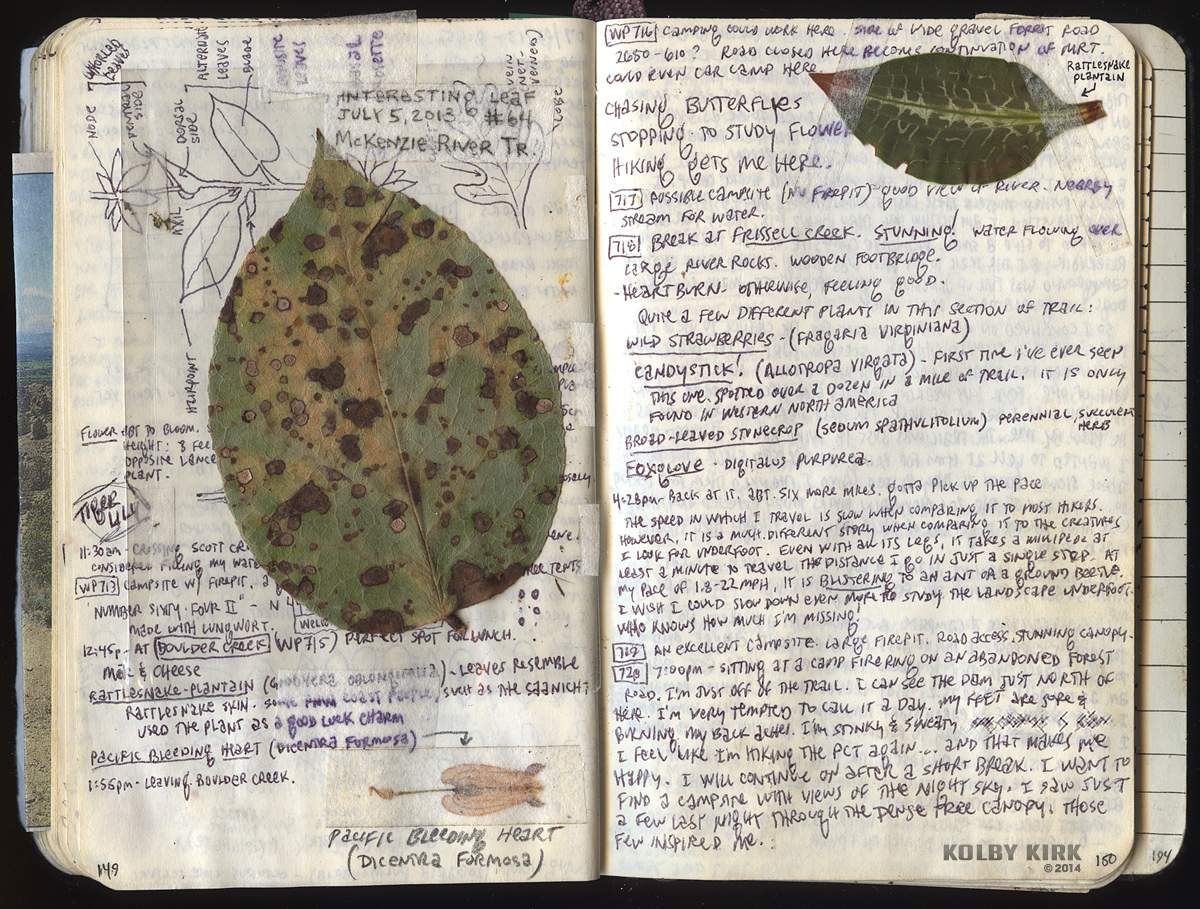 UNFURLED LEAVES
NODE
SIDE
DORSAL SIDE
ALTERNATE LEAVES
BLADE
AXIL
HAIRPOINT
VEIN
LOBE
INTERESTING LEAF
JULY 5, 2013 #64
MCKENZIE RIVER TR.
FLOWER ABT TO BLOOM.
HEIGHT: 3 FEE
OPPOSITE LANCE
PLANT.
TIGER LILY
11:30am - CROSSING SCOTT CRE
CONSIDERED FILLING MY WATE
WP713 CAMPSITE W/ FIREPIT, A
TREE TENTS
"NUMBER SIXTY-FOUR II" - N
MADE WITH LUNGWORT.
12:45p - AT BOULDER CREEK (WP715) PERFECT SPOT FOR LUNCH.
MAC & CHEESE
RATTLESNAKE-PLANTAIN (GOODYERA OBLONGIFOLIA) - LEAVES RESEMBLE
RATTLESNAKE SKIN. SOME COAST PEOPLE, SUCH AS THE SAANICH
USED THE PLANT AS A GOOD LUCK CHARM
PACIFIC BLEEDING HEART (DICENTRA FORMOSA)
1:55pm - LEAVING BOULDER CREEK.
PACIFIC BLEEDING HEART
(DICENTRA FORMOSA)
149
WP716 CAMPING COULD WORK HERE. SIDE OF WIDE GRAVEL FOREST ROAD
2650-610? ROAD CLOSED HERE BECOME CONTINUATION OF MRT.
COULD EVEN CAR CAMP HERE
RATTLESNAKE
PLANTAIN
CHASING BUTTERFLIES
STOPPING TO STUDY FLOWER
HIKING GETS ME HERE.
717 POSSIBLE CAMPSITE (NO FIREPIT) - GOOD VIEW OF RIVER. NEARBY
STREAM FOR WATER.
718 BREAK AT FRISSELL CREEK. STUNNING! WATER FLOWING OVER
LARGE RIVER ROCKS. WOODEN FOOTBRIDGE.
- HEARTBURN. OTHERWISE, FEELING GOOD.
QUITE A FEW DIFFERENT PLANTS IN THIS SECTION OF TRAIL:
WILD STRAWBERRIES - (FRAGARIA VIRGINIANA)
CANDYSTICK! (ALLOTROPA VIRGATA) - FIRST TIME I'VE EVER SEEN
THIS ONE. SPOTTED OVER A DOZEN IN A MILE OF TRAIL. IT IS ONLY
FOUND IN WESTERN NORTH AMERICA
BROAD-LEAVED STONECROP (SEDUM SPATHULIFOLIUM) PERENNIAL, SUCCULENT
HERB
FOXGLOVE - DIGITALUS PURPUREA.
4:28pm - BACK AT IT. ABT. SIX MORE MILES. GOTTA PICK UP THE PACE
THE SPEED IN WHICH I TRAVEL IS SLOW WHEN COMPARING IT TO MOST HIKERS.
HOWEVER, IT IS A MUCH DIFFERENT STORY WHEN COMPARING IT TO THE CREATURES
I LOOK FOR UNDERFOOT. EVEN WITH ALL ITS LEGS, IT TAKES A MILLIPEDE AT
LEAST A MINUTE TO TRAVEL THE DISTANCE I GO IN JUST A SINGLE STEP. AT
MY PACE OF 1.8-2.2 MPH, IT IS BLISTERING TO AN ANT OR A GROUND BEETLE.
I WISH I COULD SLOW DOWN EVEN MORE TO STUDY THE LANDSCAPE UNDERFOOT.
WHO KNOWS HOW MUCH I'M MISSING.
719 AN EXCELLENT CAMPSITE. LARGE FIREPIT. ROAD ACCESS. STUNNING CANOPY.
720 7:00pm - SITTING AT A CAMP FIRE RING ON AN ABANDONED FOREST
ROAD. I'M JUST OFF OF THE TRAIL. I CAN SEE THE DAM JUST NORTH OF
HERE. I'M VERY TEMPTED TO CALL IT A DAY. MY FEET ARE SORE &
BURNING. MY BACK ACHES. I'M STINKY & SWEATY
I FEEL LIKE I'M HIKING THE PCT AGAIN.... AND THAT MAKES ME
HAPPY. I WILL CONTINUE ON AFTER A SHORT BREAK. I WANT TO
FIND A CAMPSITE WITH VIEWS OF THE NIGHT SKY. I SAW JUST
A FEW LAST NIGHT THROUGH THE DENSE TREE CANOPY. THOSE
FEW INSPIRED ME.
150
194
KOLBY KIRK
©2014